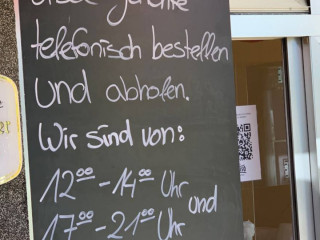 telefonisch bestellen
und abholen.
Wir sind von:
12⁰⁰-14⁰⁰ Uhr
und
17⁰⁰-21⁰⁰ Uhr